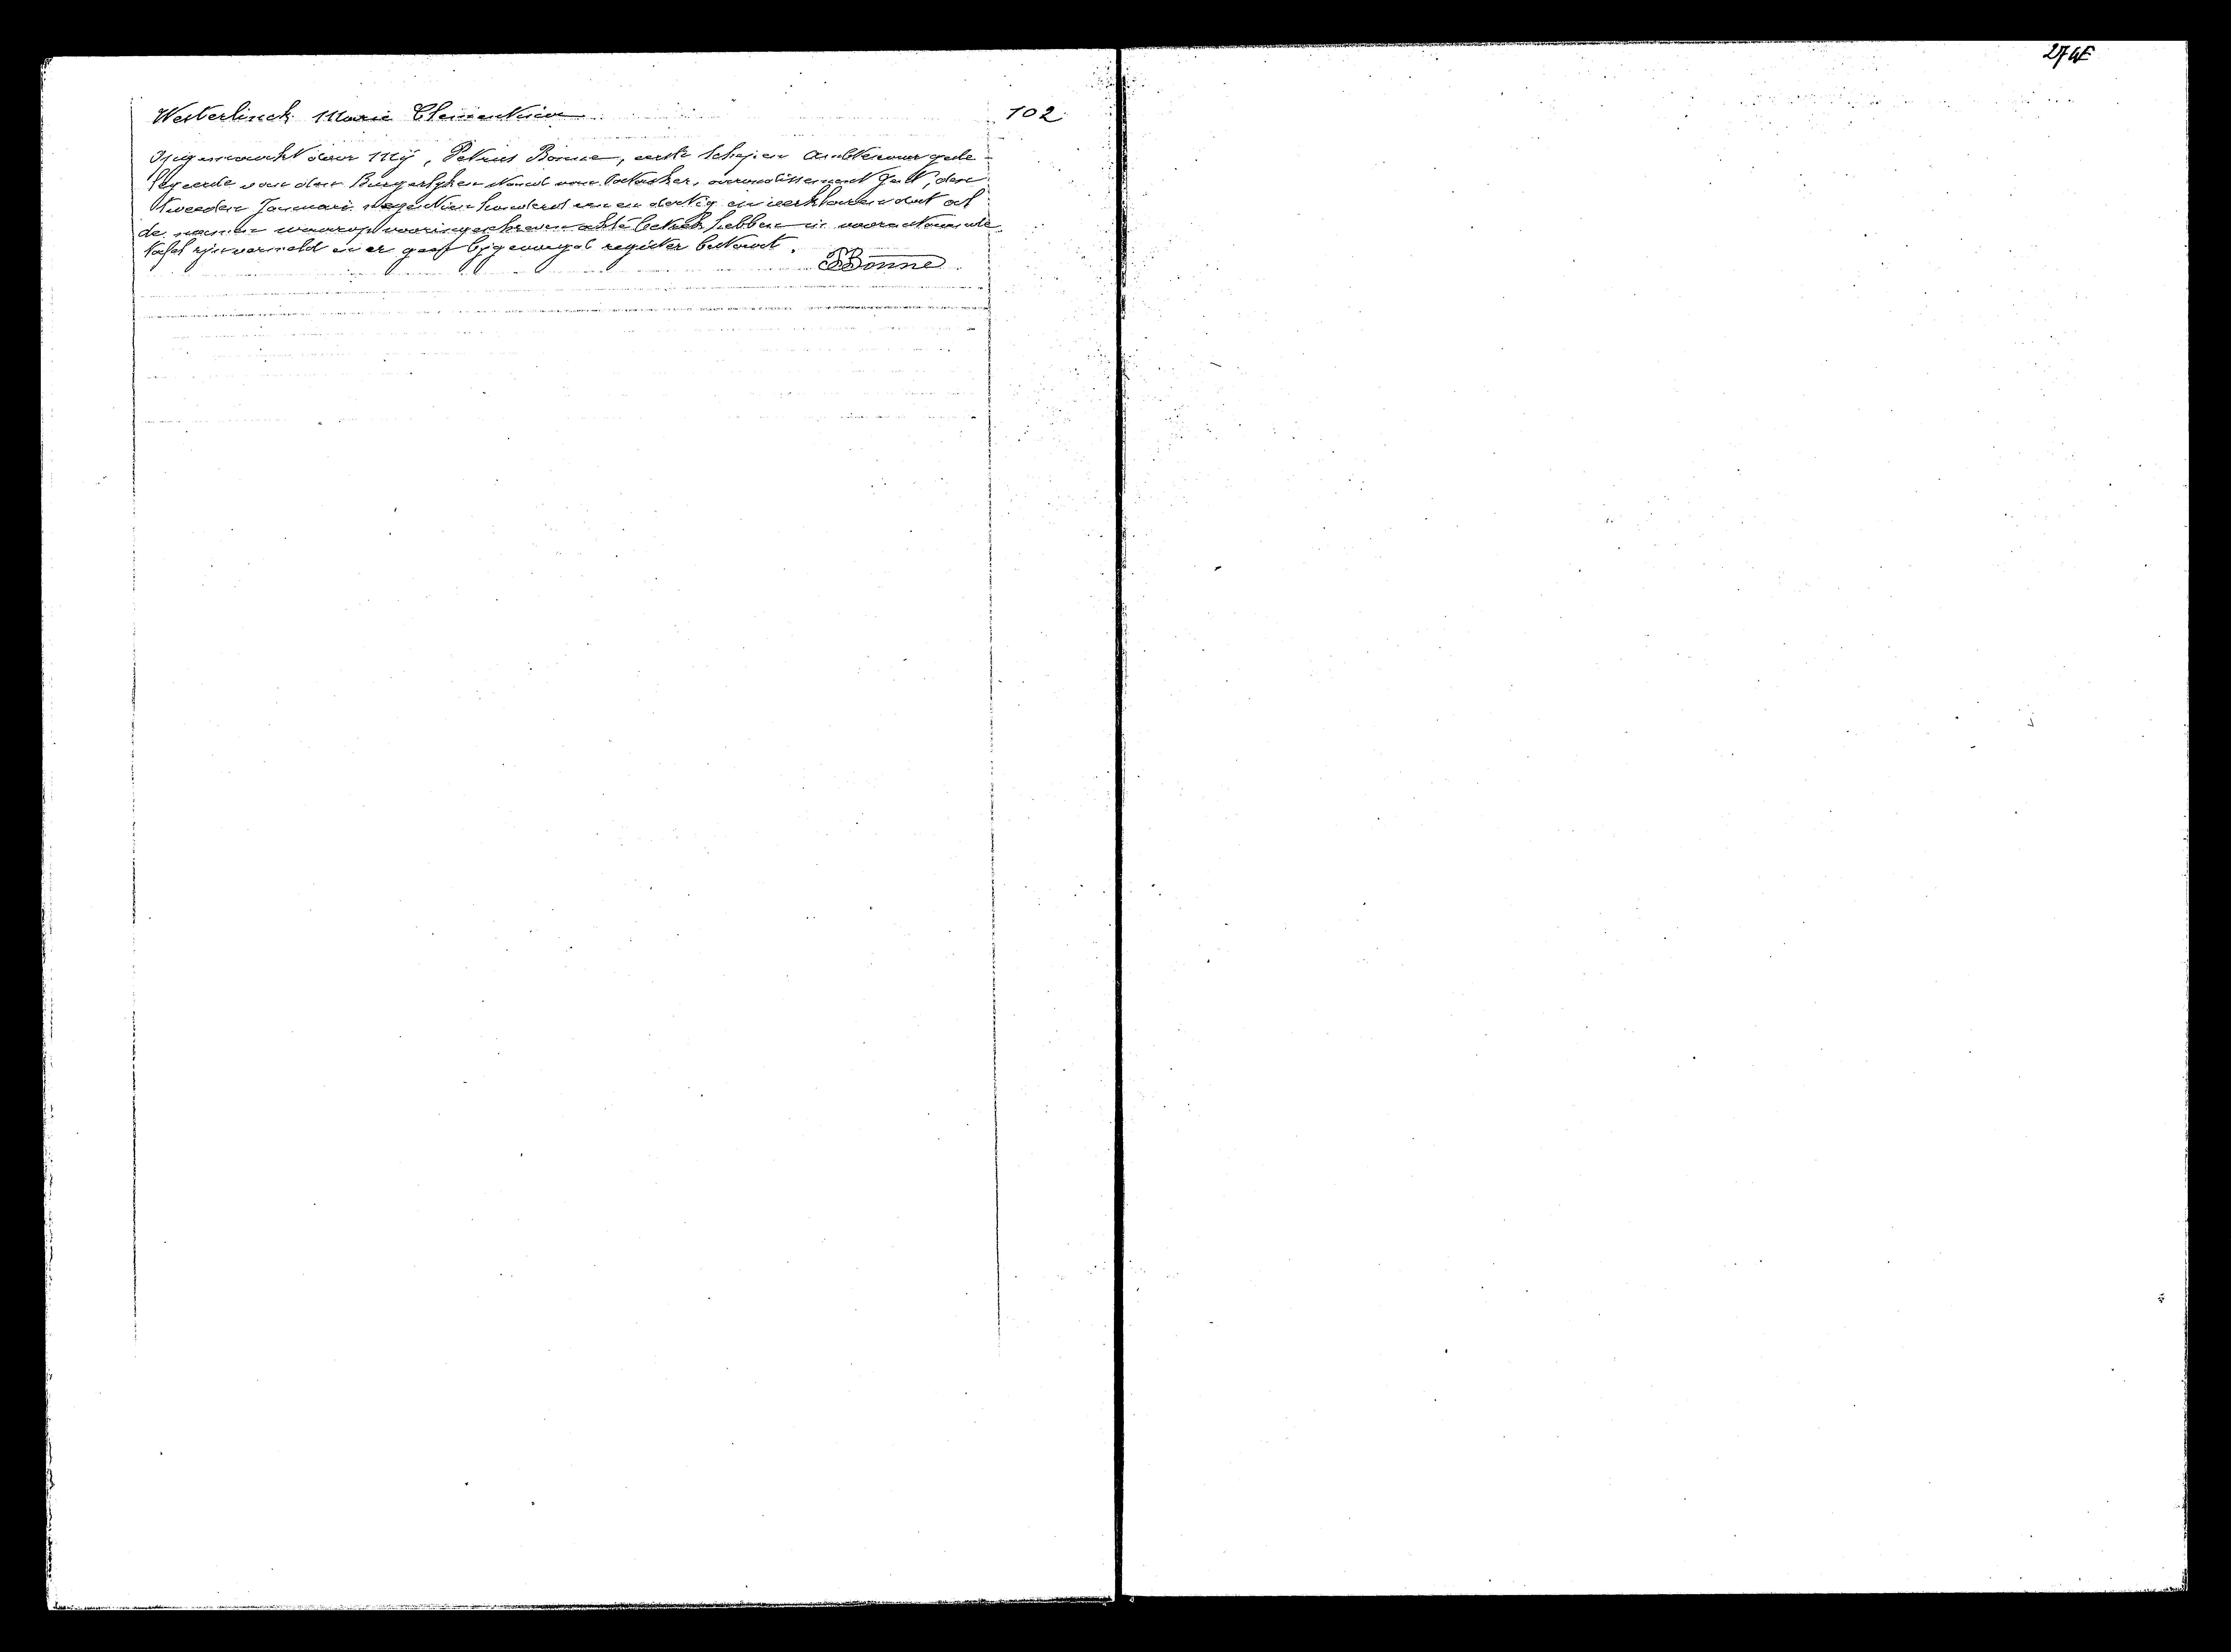 Westerlinck Marie Clementina 102
Opgemaakt door Mij, Petrus Bonne, eerste Schepen Ambtenaar gede-
legeerde van den Burgerlyken Stand van Lootenhulle, arrondissement Gent, den
tweeden Januari negentien honderd een en dertig en verklaren dat al
de namen waarop vooringeschreven akte betrek hebben in voorenstaande
tafel zijn vermeld en er geen bijgevoegd register bestaat.
PBonne
274E